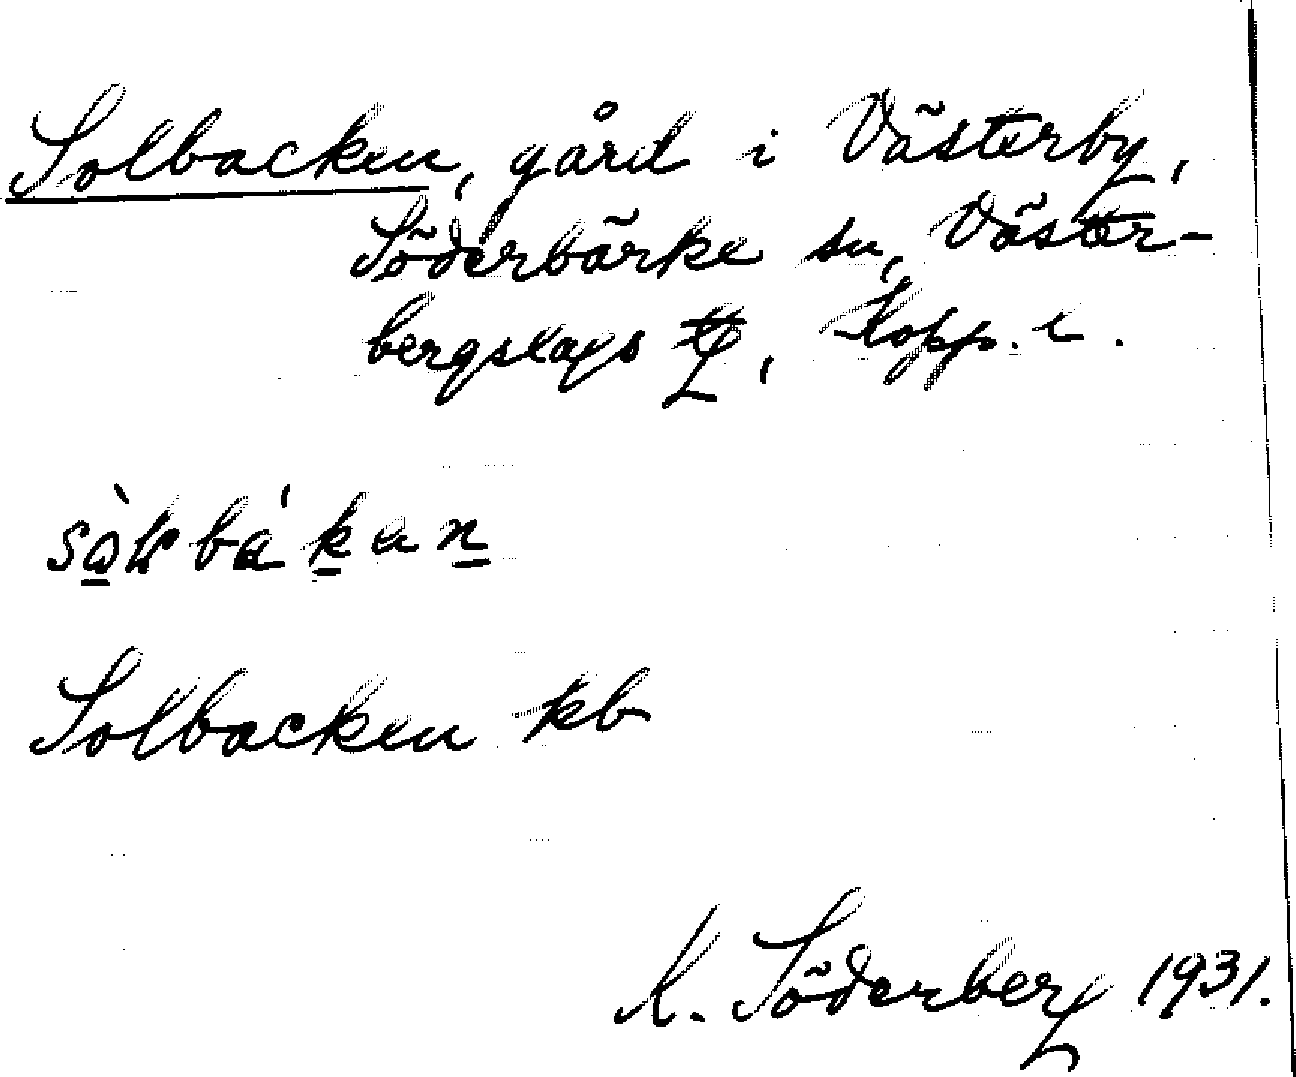 Solbacken, gård i Västerby,
Söderbärke sn, Väster-
bergslags tg, Kopp. l.
Solbacken kb
K. Söderberg 1931.